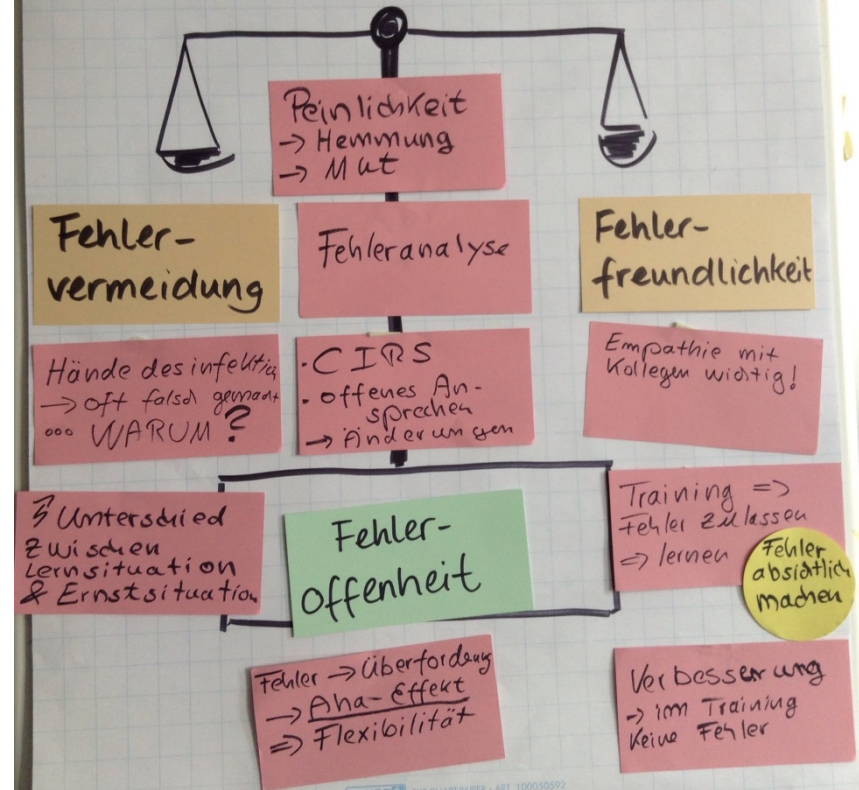 Peinlichkeit
→ Hemmung
→ Mut
Fehler-
vermeidung
Fehleranalyse
Fehler-
freundlichkeit
Hände desinfektion
→ oft falsch gemacht
... WARUM?
· CIRS
· offenes An-
sprechen
→ Änderungen
Empathie mit
Kollegen wichtig!
Unterschied
zwischen
Lernsituation
& Ernstsituation
Fehler-
Offenheit
Training =>
Fehler zulassen
=> lernen
Fehler
absichtlich
machen
Fehler → Überforderung
→ Aha-Effekt
=> Flexibilität
Verbesserung
→ im Training
keine Fehler
ART. 100050592